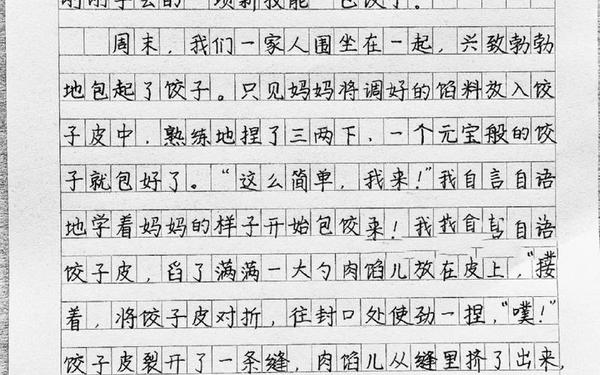 刚刚学会的一项新技能——包饺子。
周末，我们一家人围坐在一起，兴致勃勃
地包起了饺子。只见妈妈将调好的馅料放入饺
子皮中，熟练地捏了三两下，一个元宝般的饺
子就包好了。“这么简单，我来！”我自言自语
地学着妈妈的样子开始包饺来！我我自言自语
饺子皮，舀了满满一大勺肉馅儿放在皮上，“接
着，将饺子皮对折，往封口处使劲一捏，“噗！”
饺子皮裂开了一条缝，肉馅儿从缝里挤了出来，